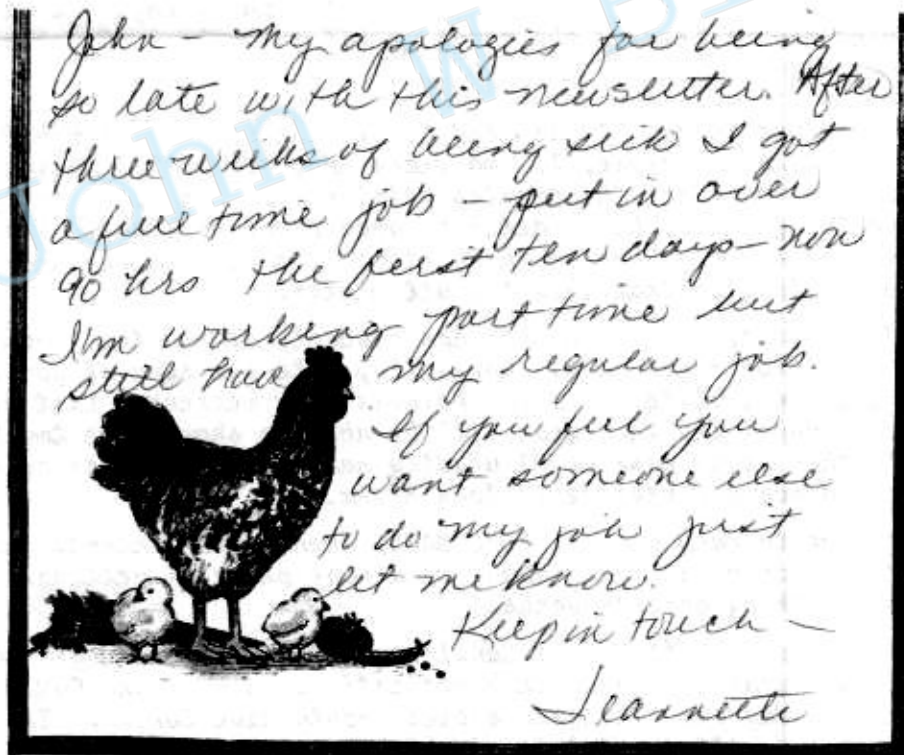 John – My apologies for being
so late with this newsletter. After
three weeks of being sick I got
a full time job – put in over
90 hrs the first ten days – now
I'm working part time but
still have my regular job.
If you feel you
want someone else
to do my job just
let me know.
Keep in touch –
Jeannette
John W